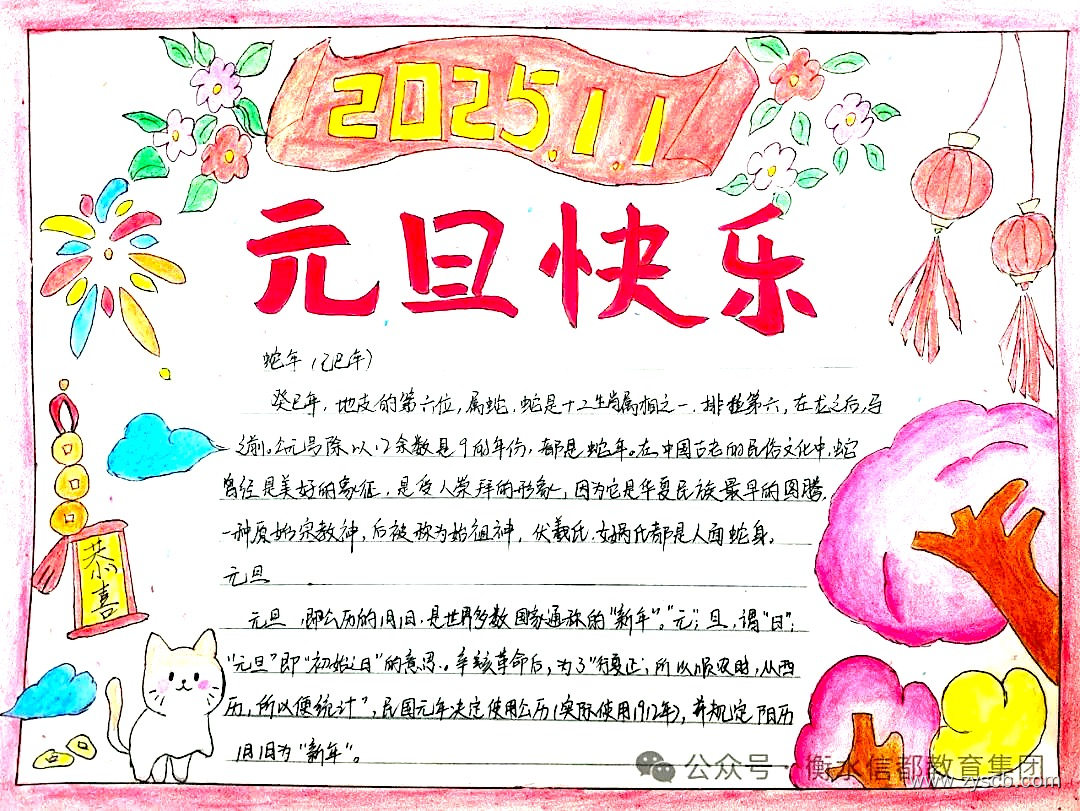 2025.1.1
元旦快乐
蛇年（乙巳年）
癸巳年，地支的第六位，属蛇，蛇是十二生肖属相之一，排在第六，在龙之后，马
之前。公元号除以12余数是9的年份，都是蛇年。在中国古老的民俗文化中，蛇
曾经是美好的象征，是受人崇拜的形象，因为它是华夏民族最早的图腾，
一种原始宗教神，后被称为始祖神，伏羲氏、女娲氏都是人面蛇身。
元旦
元旦，即公历的1月1日，是世界多数国家通称的“新年”。“元”；旦，谓“日”；
“元旦”即“初始之日”的意思。辛亥革命后，为了“行夏正，所以顺农时，从西
历，所以便统计”，民国元年决定使用公历（实际使用1912年），并规定阳历
1月1日为“新年”。
恭喜
公众号·衡水信都教育集团
www.zyscb.com